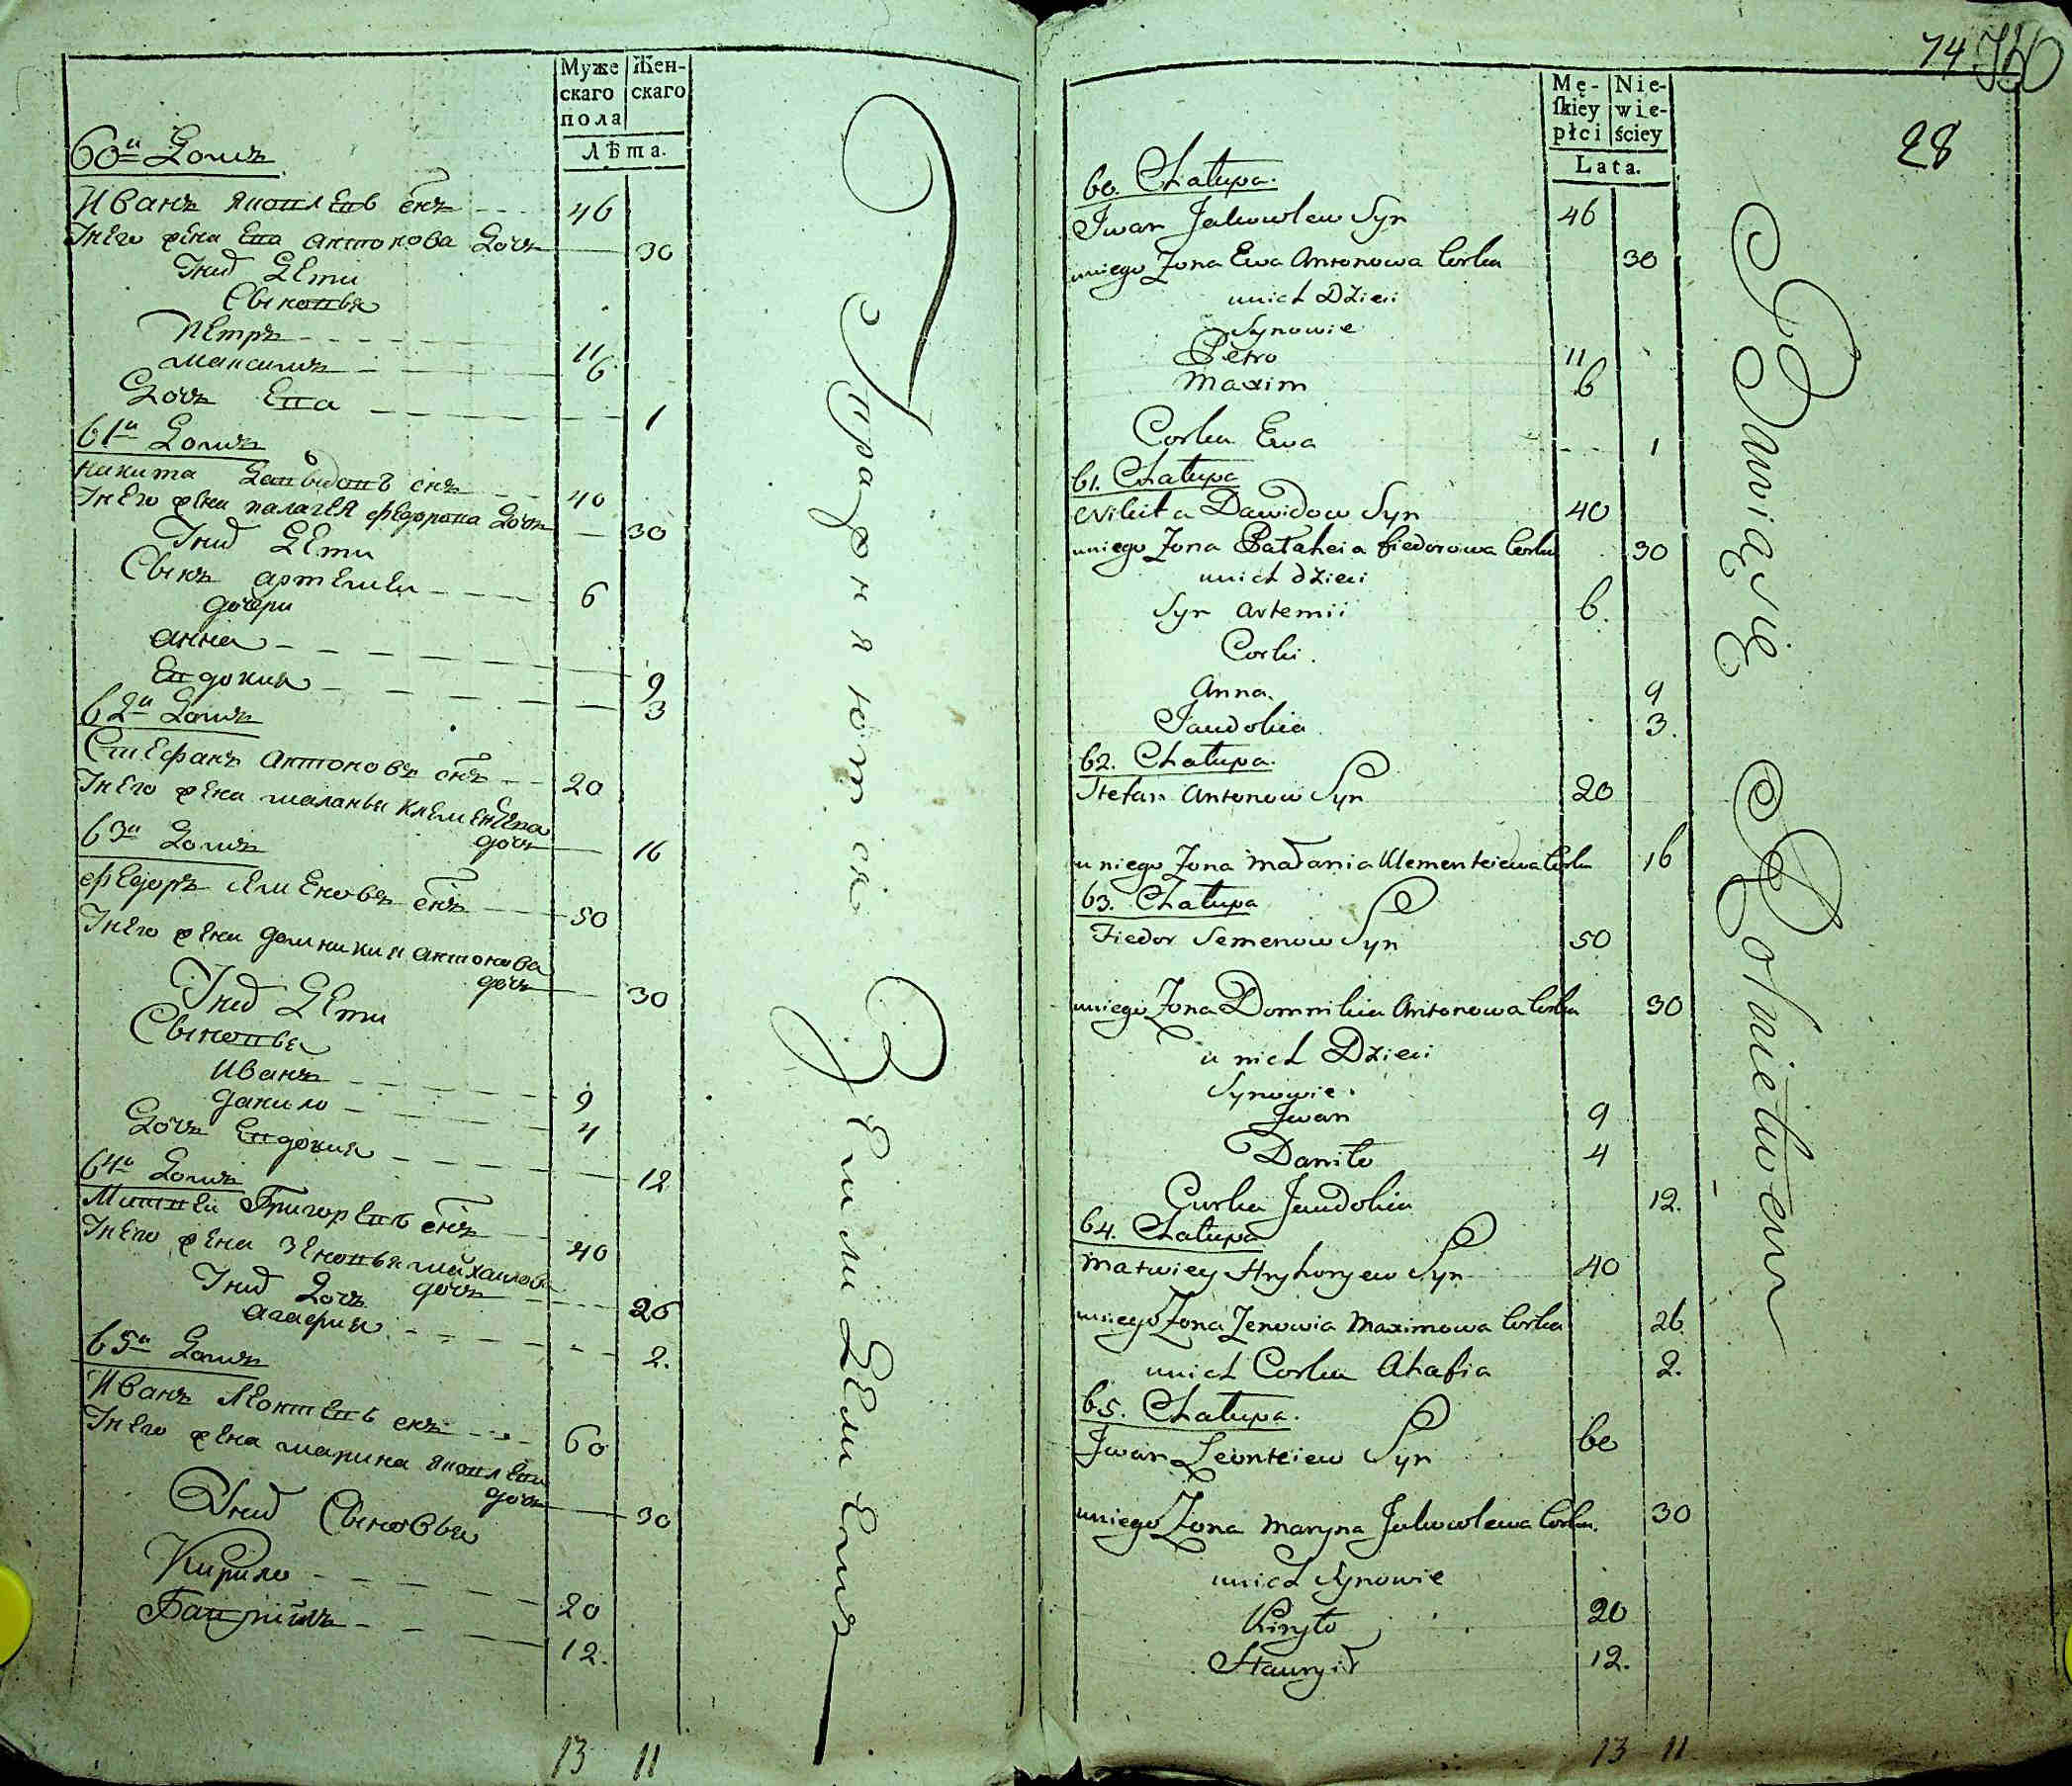 Муже
скаго
пола
Жен-
скаго
Лѣта.
60й Домъ
Иванъ Яковлевъ снъ 46
Унего жена Ева антонова дочь 30
Унихъ Дети
Сыновья
Петръ 11
Максимъ 6
Дочь Ева 1
61й Домъ
Никита Давыдовъ снъ 40
Унего жена палагея федорова дочь 30
Унихъ Дети
Сынъ артемеи 6
дочери
анна 9
Евдокия 3
62й Домъ
Стефанъ антоновъ снъ 20
Унего жена маланья клементева
дочь 16
63й Домъ
федоръ Семеновъ снъ 50
Унего жена домникия антонова
дочь 30
Унихъ Дети
Сыновья
Иванъ 9
данило 4
Дочь Евдокия 12
64й Домъ
Матвеи Григоревъ снъ 40
Унего жена Зеновья михаилова
дочь 26
Унихъ Дочь
агафия 2.
65й Домъ
Иванъ Леонтевъ снъ 60
Унего жена марина яковлева
дочь 30
Унихъ Сыновья
Кирило 20
Гаврилъ 12.
13 11
Упражняются Земледелиемъ
74
28
Mę-
ſkiey
płci
Nie-
wie-
ściey
Lata.
60. Chałupa.
Jwan Jakowlew Syn 46
uniego Zona Ewa Antonowa Corka 30
unich Dzieci
Synowie
Petro 11
Maxim 6
Corka Ewa 1
61. Chałupa
Nikita Dawidow Syn 40
uniego Zona Pałaheia fiedorowa Corka 30
unich dzieci
Syn Artemii 6.
Corki.
Anna. 9
Jaudokia 3.
62. Chałupa.
Stefan Antonow Syn 20
u niego Zona Małania Klementeiewa Corka 16
63. Chałupa
Fiedor Semenow Syn 50
uniego Zona Domnikia Antonowa Corka 30
u nich Dzieci
Synowie.
Jwan 9
Daniło 4
Curka Jaudokia 12.
64. Chałupa
Matwiey Hryhoryew Syn 40
uniego Zona Zenowia Maximowa Corka 26
unich Corka Ahafia 2.
65. Chałupa.
Jwan Leonteiew Syn 60
uniego Zona Maryna Jakowlewa Corka. 30
unich Synowie
Kiryło 20
Hauryił 12.
13 11
Bawią się Rolnictwem